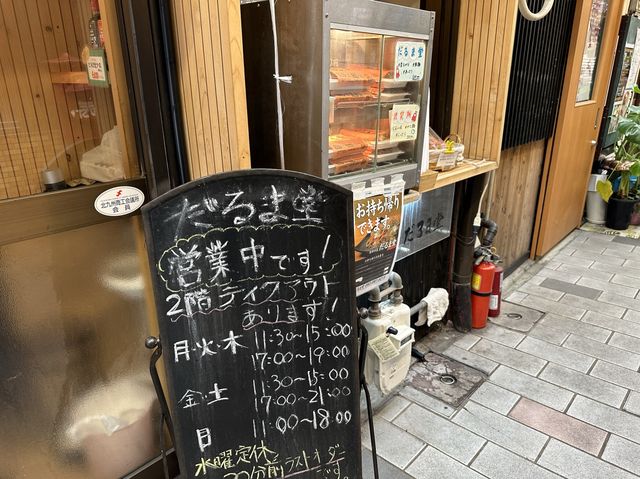 だるま堂
営業中です!
2階テイクアウト
あります!
月・火・木 11:30~15:00
17:00~19:00
金・土 11:30~15:00
17:00~21:00
日 11:00~18:00
水曜定休
30分前ラストオーダー
です
北九州商工会議所
会員
お持ち帰り
できます。
だるま堂
だるま堂